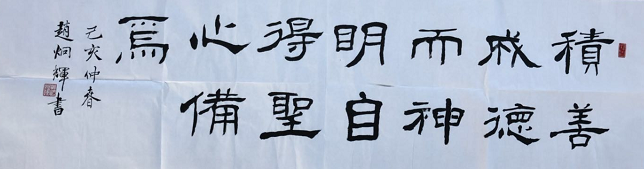 積善
成德
而神
明自
得聖
心備
焉
己亥仲春
趙炯輝書